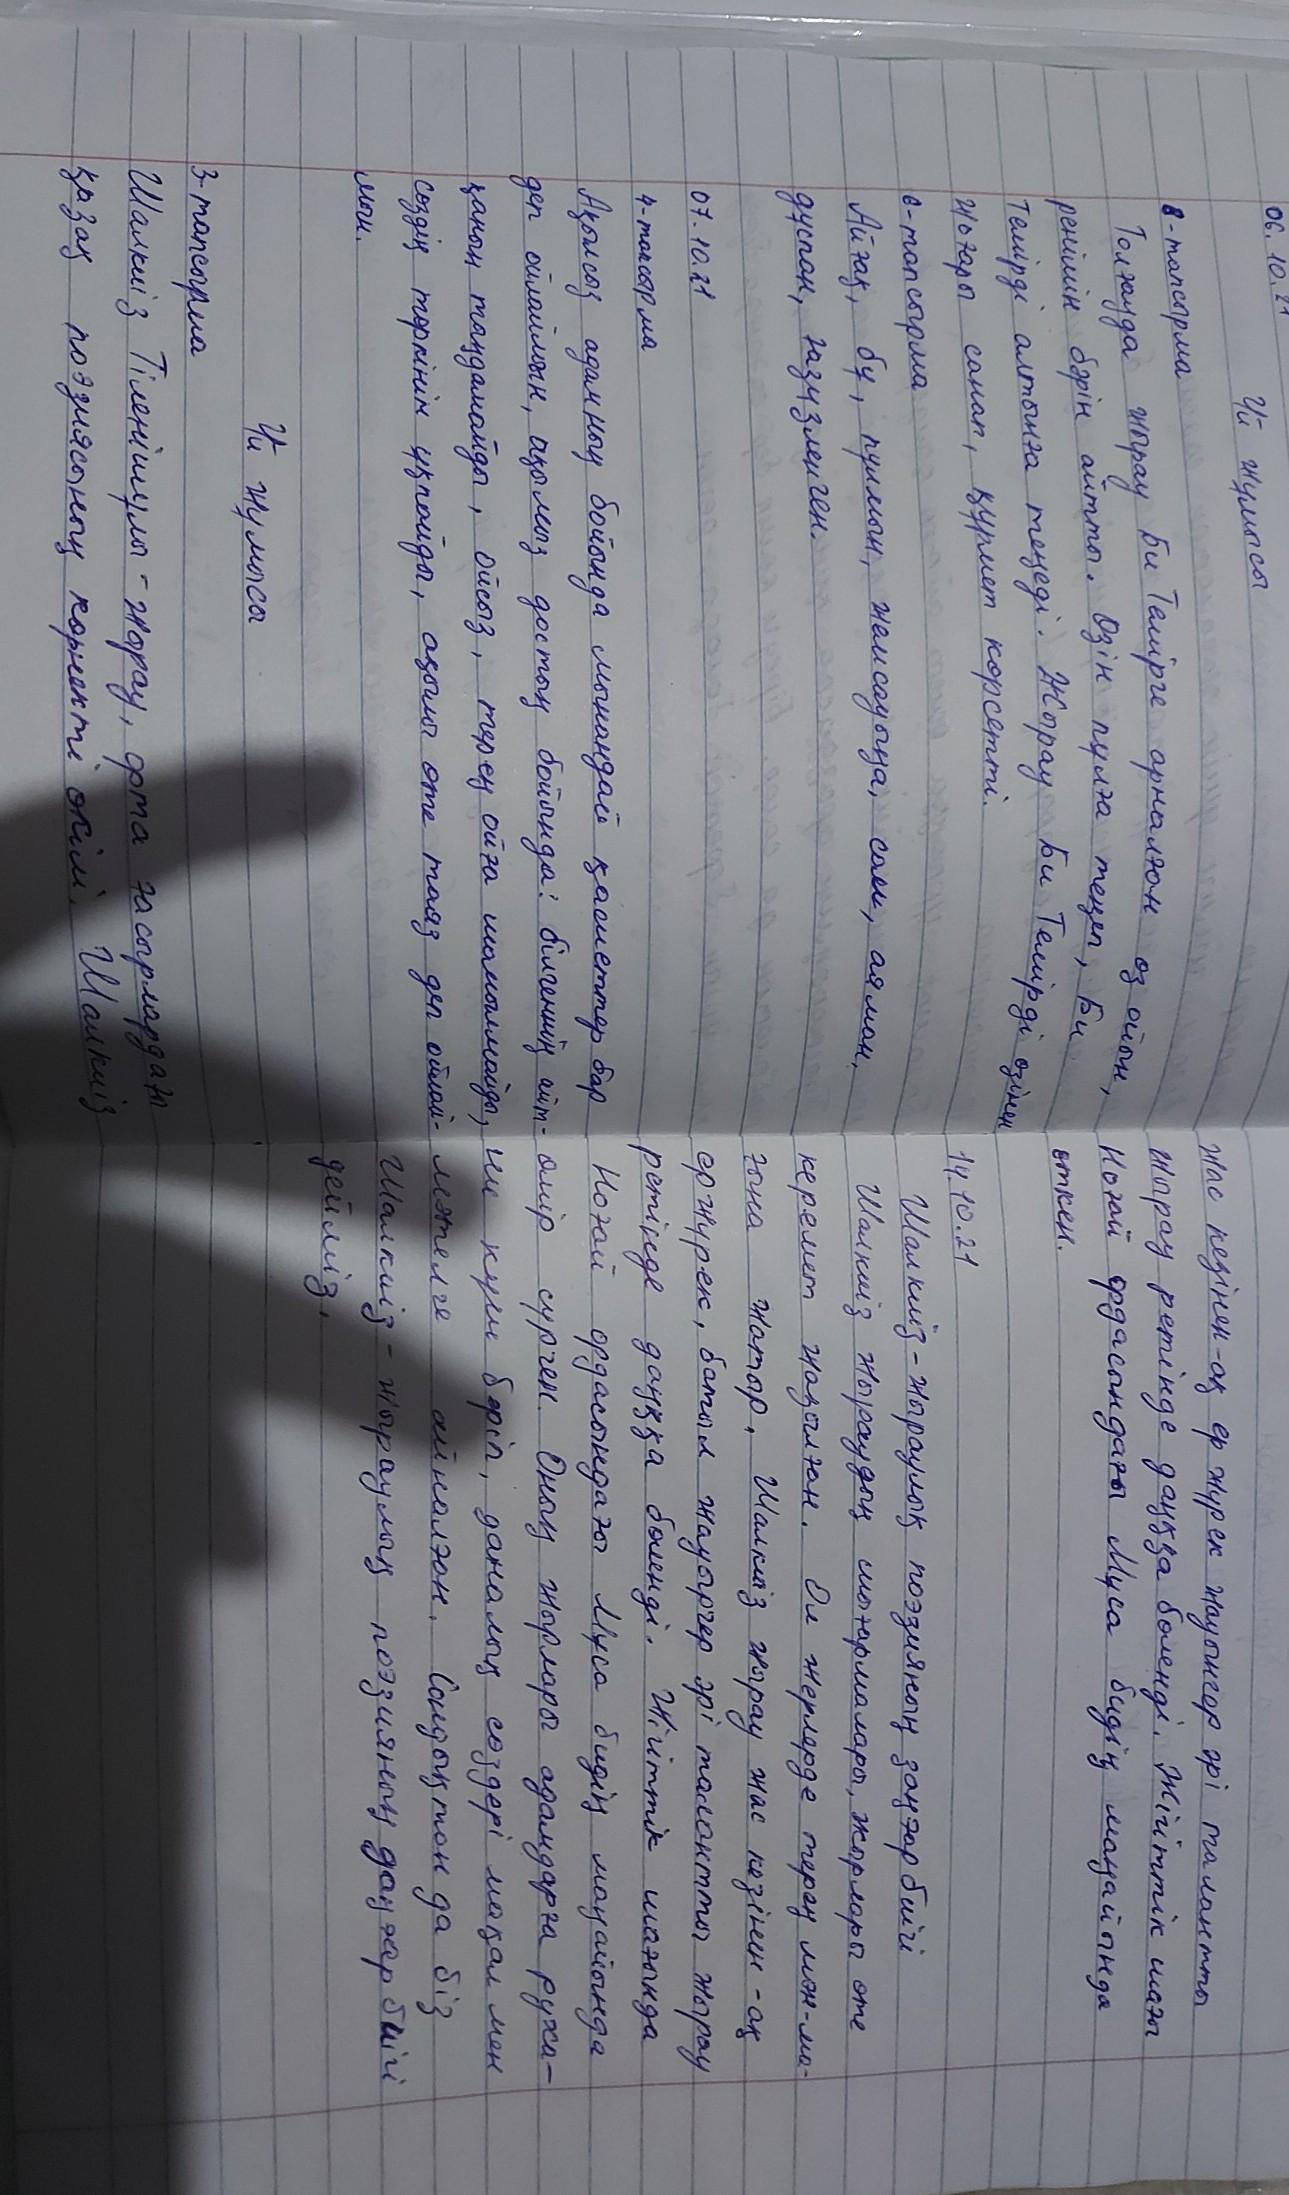 06.10.21
Үй жұмысы
8-тапсырма
Толғауда жырау Би Темірге арналған өз ойын,
ренішін бәрін айтты. Өзін пұлға теңеп, Би
Темірді алтынға теңеді. Жырау Би Темірді өзінен
жоғары санап, құрмет көрсетті.
6-тапсырма
Айғақ, бұ, пұшман, жамсауыңа, сом, аямон,
дұспан, газизлеуген.
07.10.21
4-тапсырма
Ақылсыз адамның бойында мынандай қасиеттер бар
деп ойлаймын, ақылыз достың бойында: білгенің айт-
қанын таңдамайды, ойсыз, терең ойға шомылмайды,
сөздің төркінін ұқпайды, ақылы өте таяз деп ойлай-
мын.
Үй жұмысы
3-тапсырма
Шалкиіз Тіленішұлы - жырау, орта ғасырлардағы
қазақ поэзиясының көрнекті өкілі. Шалкиіз
жас кезінен-ақ ер жүрек жауынгер әрі талантты
жырау ретінде даңққа бөленді. Жігіттік шағы
Ноғай ордасындағы Мұса бидің маңайында
өткен.
14.10.21
Шалкиіз - жыраулық поэзияның заңғар биігі
Шалкиіз жыраудың шығармалары, жырлары өте
керемет жазылған. Ол жерлерде терең мән-ма-
ғына жатыр. Шалкиіз жырау жас кезінен-ақ
ержүрек, батыл жауыргер әрі талантты жырау
ретінде даңққа бөленді. Жігіттік шағында
Ноғай ордасындағы Мұса бидің маңайында
өмір сүрген. Оның жырлары адамдарға руха-
ни күш беріп, даналық сөздері мақал мен
мәтелге айналған. Сондықтан да біз
Шалкиіз - жыраулық поэзияның заңғар биігі
дейміз.